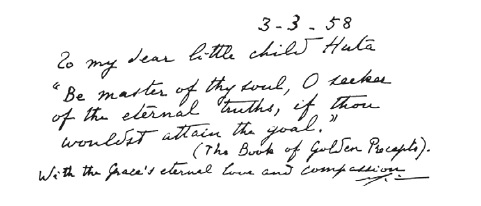 3-3-58
To my dear little child Huta
"Be master of thy soul, O seeker
of the eternal truths, if thou
wouldst attain the goal."
(The Book of Golden Precepts).
With the Grace's eternal love and compassion